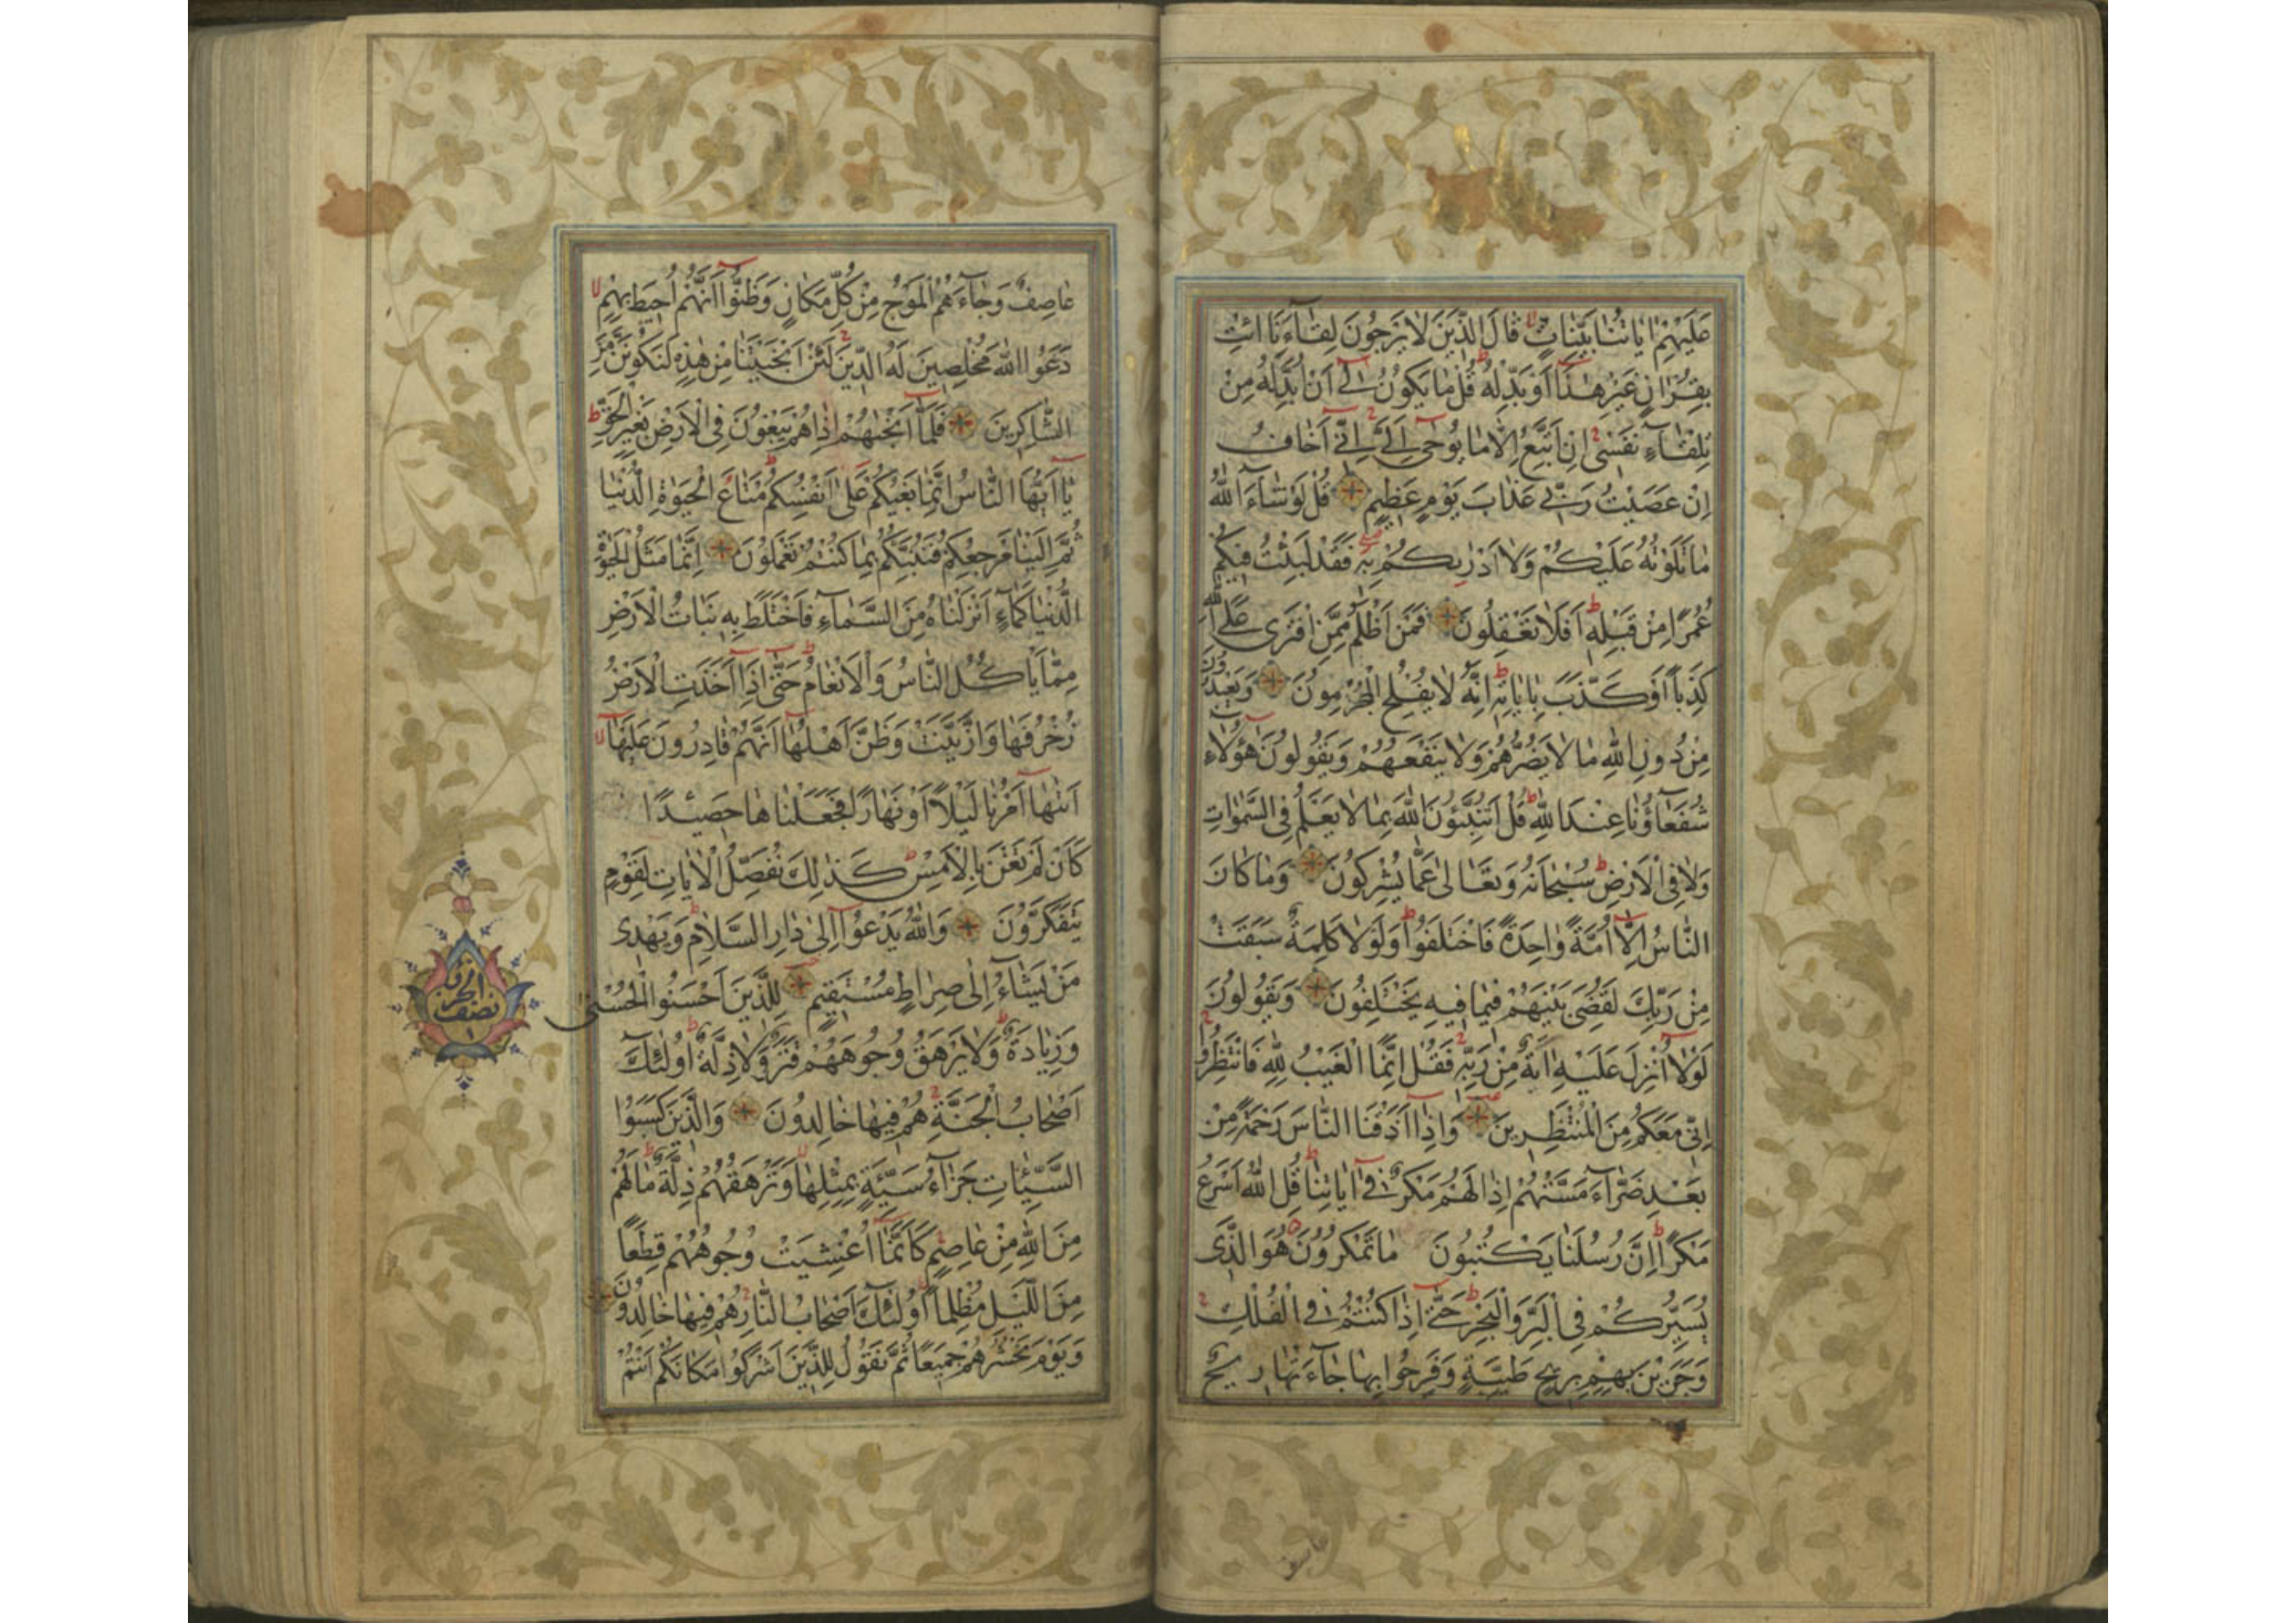 عَلَيْهِمْ اٰيَاتُنَا بَيِّنَاتٍ قَالَ الَّذِينَ لَا يَرْجُونَ لِقَاءَنَا ائْتِ
بِقُرْاٰنٍ غَيْرِ هٰذَا اَوْ بَدِّلْهُ قُلْ مَا يَكُونُ لِي اَنْ اُبَدِّلَهُ مِنْ
تِلْقَاءِ نَفْسِي اِنْ اَتَّبِعُ اِلَّا مَا يُوحٰى اِلَيَّ اِنِّي اَخَافُ
اِنْ عَصَيْتُ رَبِّي عَذَابَ يَوْمٍ عَظِيمٍ قُلْ لَوْ شَاءَ اللّٰهُ
مَا تَلَوْتُهُ عَلَيْكُمْ وَلَا اَدْرٰيكُمْ بِهِ فَقَدْ لَبِثْتُ فِيكُمْ
عُمُرًا مِنْ قَبْلِهِ اَفَلَا تَعْقِلُونَ فَمَنْ اَظْلَمُ مِمَّنِ افْتَرٰى عَلَى اللّٰهِ
كَذِبًا اَوْ كَذَّبَ بِاٰيَاتِهِ اِنَّهُ لَا يُفْلِحُ الْمُجْرِمُونَ وَيَعْبُدُونَ
مِنْ دُونِ اللّٰهِ مَا لَا يَضُرُّهُمْ وَلَا يَنْفَعُهُمْ وَيَقُولُونَ هٰؤُلَاءِ
شُفَعَاؤُنَا عِنْدَ اللّٰهِ قُلْ اَتُنَبِّئُونَ اللّٰهَ بِمَا لَا يَعْلَمُ فِي السَّمٰوَاتِ
وَلَا فِي الْاَرْضِ سُبْحَانَهُ وَتَعَالٰى عَمَّا يُشْرِكُونَ وَمَا كَانَ
النَّاسُ اِلَّا اُمَّةً وَاحِدَةً فَاخْتَلَفُوا وَلَوْلَا كَلِمَةٌ سَبَقَتْ
مِنْ رَبِّكَ لَقُضِيَ بَيْنَهُمْ فِيمَا فِيهِ يَخْتَلِفُونَ وَيَقُولُونَ
لَوْلَا اُنْزِلَ عَلَيْهِ اٰيَةٌ مِنْ رَبِّهِ فَقُلْ اِنَّمَا الْغَيْبُ لِلّٰهِ فَانْتَظِرُوا
اِنِّي مَعَكُمْ مِنَ الْمُنْتَظِرِينَ وَاِذَا اَذَقْنَا النَّاسَ رَحْمَةً مِنْ
بَعْدِ ضَرَّاءَ مَسَّتْهُمْ اِذَا لَهُمْ مَكْرٌ فِي اٰيَاتِنَا قُلِ اللّٰهُ اَسْرَعُ
مَكْرًا اِنَّ رُسُلَنَا يَكْتُبُونَ مَا تَمْكُرُونَ هُوَ الَّذِي
يُسَيِّرُكُمْ فِي الْبَرِّ وَالْبَحْرِ حَتّٰى اِذَا كُنْتُمْ فِي الْفُلْكِ
وَجَرَيْنَ بِهِمْ بِرِيحٍ طَيِّبَةٍ وَفَرِحُوا بِهَا جَاءَتْهَا رِيحٌ
عاصف
عَاصِفٌ وَجَاءَهُمُ الْمَوْجُ مِنْ كُلِّ مَكَانٍ وَظَنُّوا اَنَّهُمْ اُحِيطَ بِهِمْ
دَعَوُا اللّٰهَ مُخْلِصِينَ لَهُ الدِّينَ لَئِنْ اَنْجَيْتَنَا مِنْ هٰذِهِ لَنَكُونَنَّ مِنَ
الشَّاكِرِينَ فَلَمَّا اَنْجٰيهُمْ اِذَا هُمْ يَبْغُونَ فِي الْاَرْضِ بِغَيْرِ الْحَقِّ
يَا اَيُّهَا النَّاسُ اِنَّمَا بَغْيُكُمْ عَلٰى اَنْفُسِكُمْ مَتَاعَ الْحَيٰوةِ الدُّنْيَا
ثُمَّ اِلَيْنَا مَرْجِعُكُمْ فَنُنَبِّئُكُمْ بِمَا كُنْتُمْ تَعْمَلُونَ اِنَّمَا مَثَلُ الْحَيٰوةِ
الدُّنْيَا كَمَاءٍ اَنْزَلْنَاهُ مِنَ السَّمَاءِ فَاخْتَلَطَ بِهِ نَبَاتُ الْاَرْضِ
مِمَّا يَاْكُلُ النَّاسُ وَالْاَنْعَامُ حَتّٰى اِذَا اَخَذَتِ الْاَرْضُ
زُخْرُفَهَا وَازَّيَّنَتْ وَظَنَّ اَهْلُهَا اَنَّهُمْ قَادِرُونَ عَلَيْهَا
اَتٰيهَا اَمْرُنَا لَيْلًا اَوْ نَهَارًا فَجَعَلْنَاهَا حَصِيدًا
كَاَنْ لَمْ تَغْنَ بِالْاَمْسِ كَذٰلِكَ نُفَصِّلُ الْاٰيَاتِ لِقَوْمٍ
يَتَفَكَّرُونَ وَاللّٰهُ يَدْعُوا اِلٰى دَارِ السَّلَامِ وَيَهْدِي
مَنْ يَشَاءُ اِلٰى صِرَاطٍ مُسْتَقِيمٍ لِلَّذِينَ اَحْسَنُوا الْحُسْنٰى
وَزِيَادَةٌ وَلَا يَرْهَقُ وُجُوهَهُمْ قَتَرٌ وَلَا ذِلَّةٌ اُولٰئِكَ
اَصْحَابُ الْجَنَّةِ هُمْ فِيهَا خَالِدُونَ وَالَّذِينَ كَسَبُوا
السَّيِّئَاتِ جَزَاءُ سَيِّئَةٍ بِمِثْلِهَا وَتَرْهَقُهُمْ ذِلَّةٌ مَا لَهُمْ
مِنَ اللّٰهِ مِنْ عَاصِمٍ كَاَنَّمَا اُغْشِيَتْ وُجُوهُهُمْ قِطَعًا
مِنَ اللَّيْلِ مُظْلِمًا اُولٰئِكَ اَصْحَابُ النَّارِ هُمْ فِيهَا خَالِدُونَ
وَيَوْمَ نَحْشُرُهُمْ جَمِيعًا ثُمَّ نَقُولُ لِلَّذِينَ اَشْرَكُوا مَكَانَكُمْ اَنْتُمْ
نصف